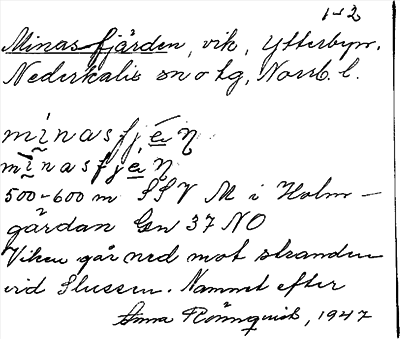 1-2
Minasfjärden, vik, Ytterbyn.
Nederkalix sn o tg, Norrb. l.
minasfjen
minasfjen
500-600 m SSV M i Holm-
gårdan Gn 37 NO
Viken går ned mot stranden
vid Slussen. Namnet efter
Anna Rönnquist, 1947